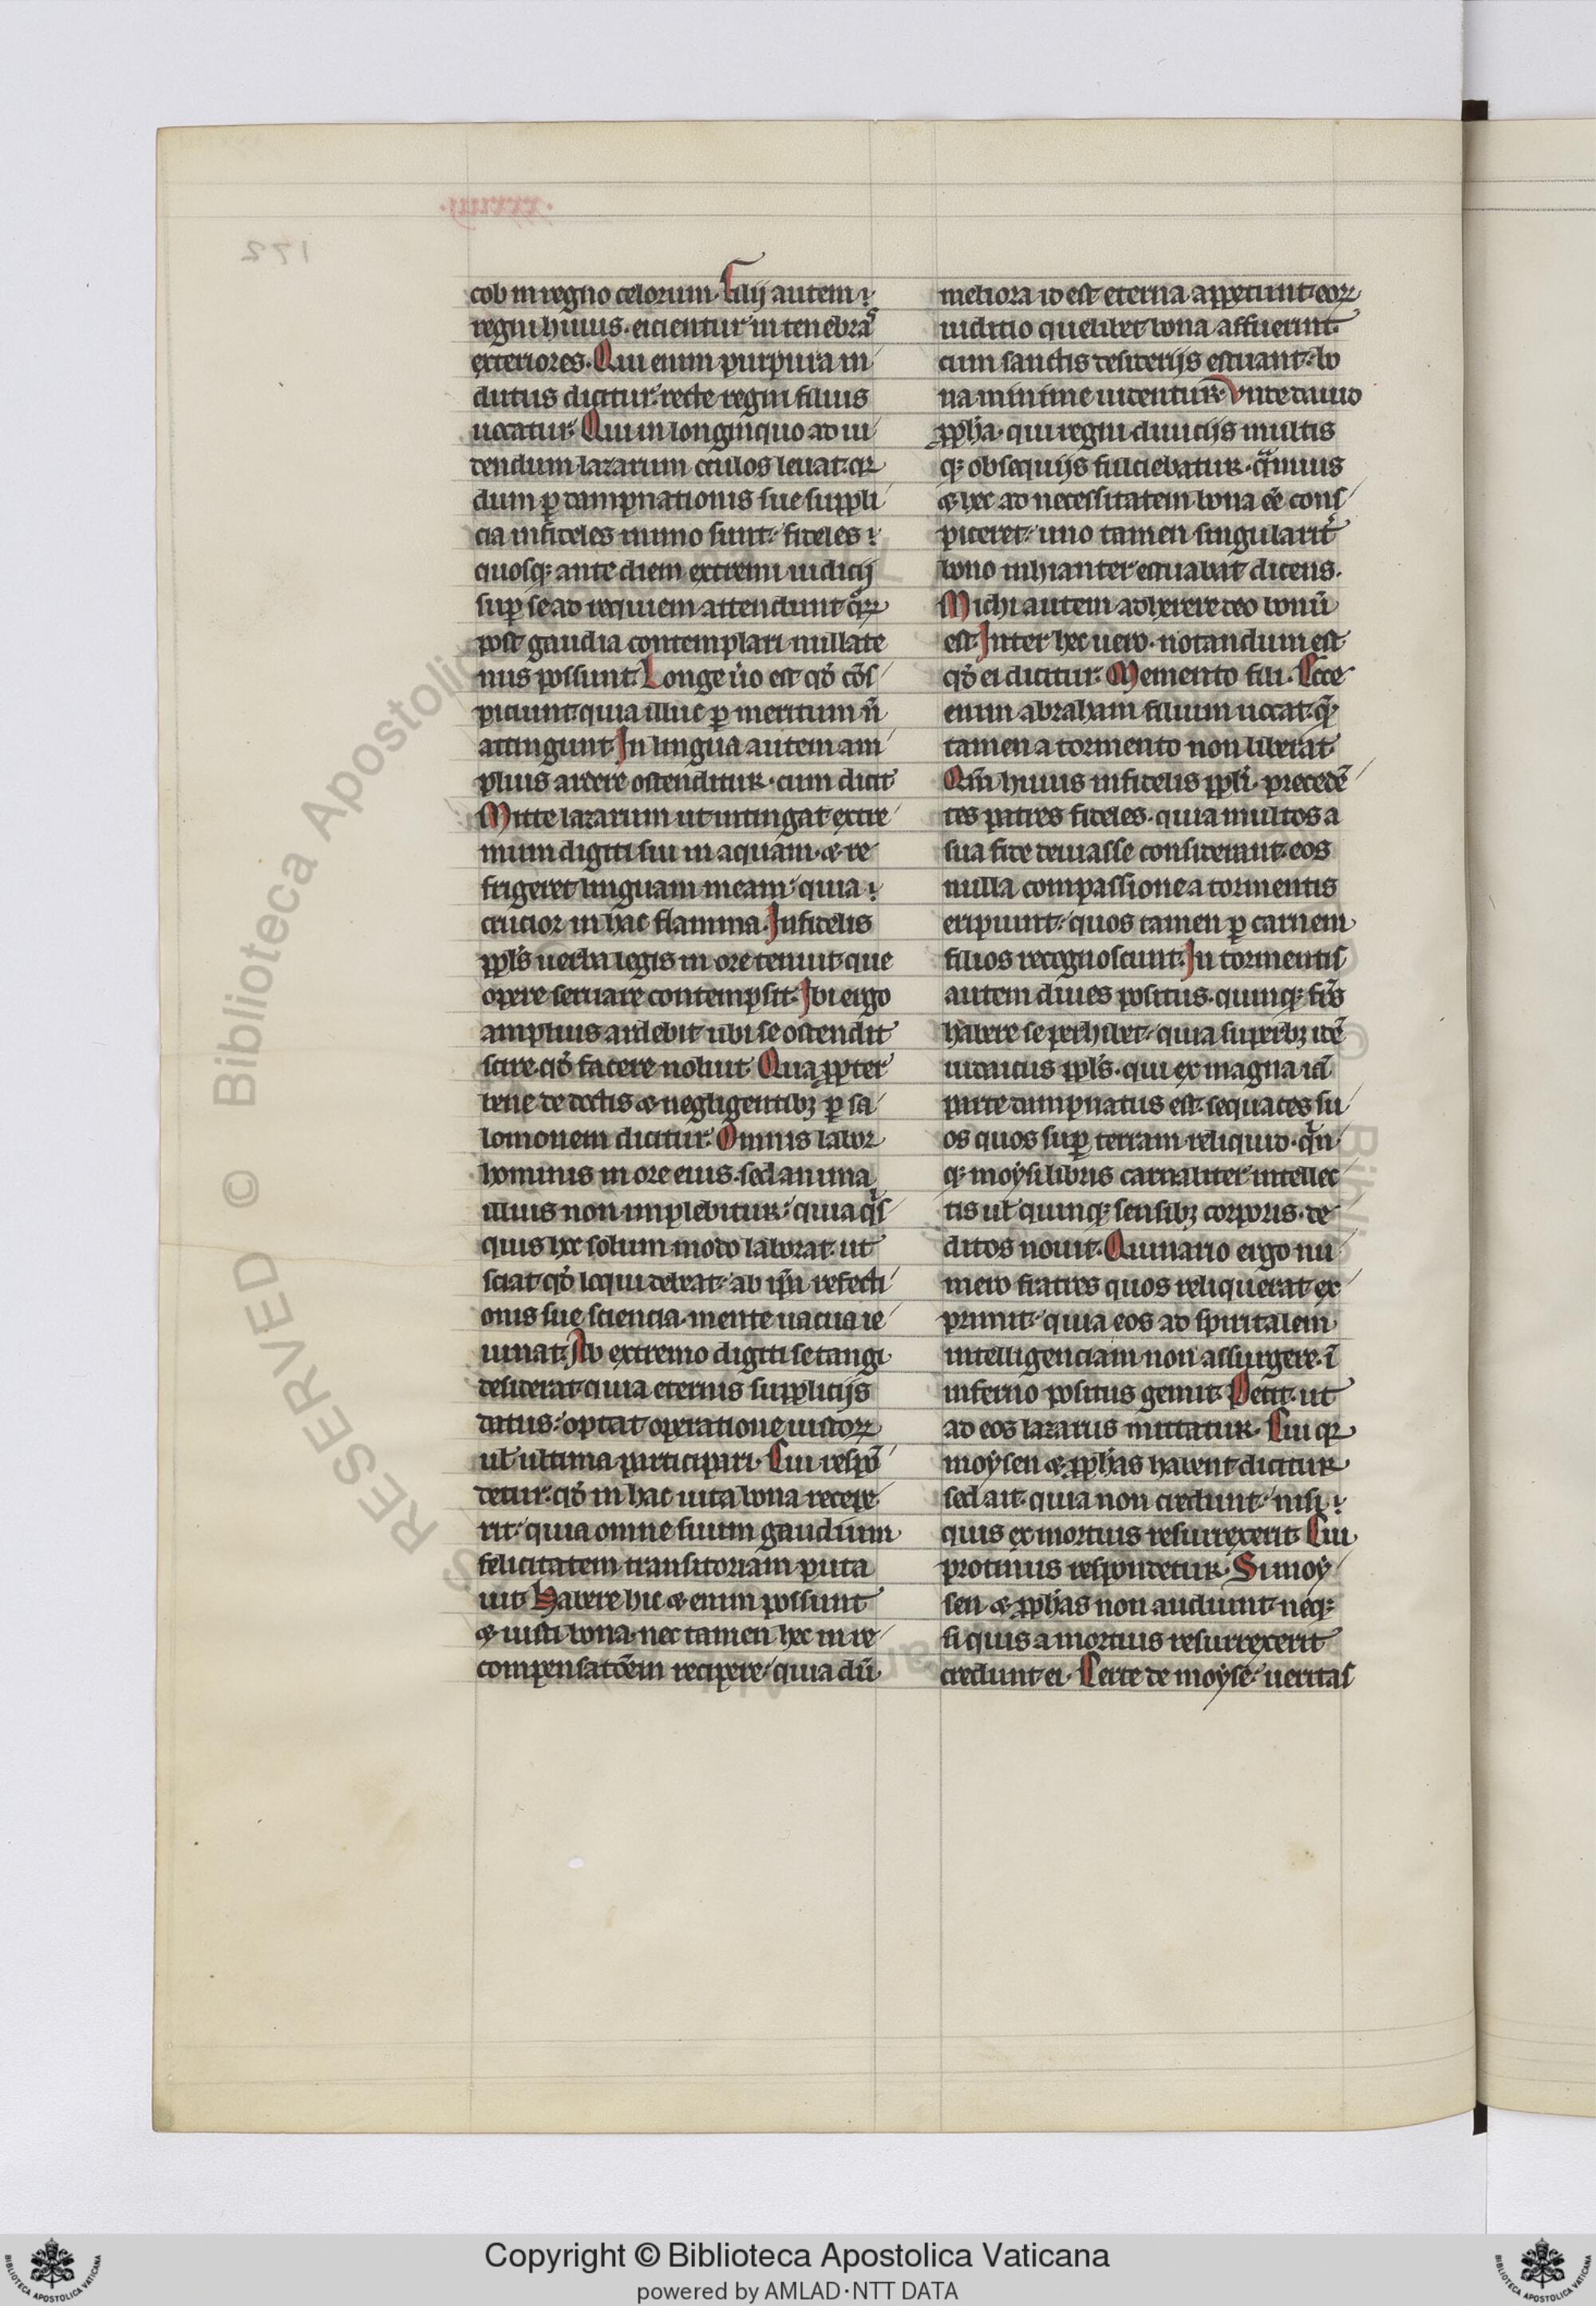 cob in regno celorum. Filij autem
regni huius. eicientur in tenebras
exteriores. Qui enim purpura in
dutus dicitur. recte regni filius
uocatur. Qui in longinquo ad ui
dendum lazarum oculos leuat. qr
dum p dampnationis sue suppli
cia infideles in imo sunt. fideles
quosq; ante diem extremi iudicij
sup se ad requiem attendunt qꝝ
post gaudia contemplari nullate
nus possunt. Longe ũo est qd̾ cõs
piciunt. quia illuc p meritum ñ
attingunt. In lingua autem am
plius ardere ostenditur. cum dicit
Mitte lazarum ut intingat extre
mum digiti sui in aquam. & re
frigeret linguam meam. quia
crucior in hac flamma. Infidelis
ppl̾s uerba legis in ore tenuit. que
opere seruare contempsit. Ibi ergo
amplius ardebit. ubi se ostendit
scire. qd̾ facere noluit. Quapropter
bene de doctis & negligentibꝫ p sa
lomonem dicitur. Omnis labor
hominis in ore eius. sed anima
illius non implebitur. quia q̾s
quis hoc solum modo laborat. ut
sciat qd̾ loqui debeat. ab ipa refecti
onis sue sciencia. mente uacua ie
iunat. Ab extremo digiti se tangi
desiderat. quia eternis supplicijs
datus. optat operatione iustoꝝ
ul̾ ultima participari. Cui respõ
detur. qd̾ in hac uita bona recepe
rit. quia omne suum gaudium
felicitatem transitoriam puta
uit. Habere hic & enim possunt
& iusti bona. nec tamen hec in re
compensatõem recipere. quia dũ
meliora id est eterna appetunt. eoꝝ
iuditio quelibet bona affuerint.
cum sanctis desiderijs estuant. bo
na minime uidentur. Vnde dauid
ppha. qui regni diuicijs multis
q; obsequijs fulciebatur. q̃muis
& hec ad necessitatem bona eẽ cons
piceret. uno tamen singularit̾
bono inhianter estuabat dicens.
Michi autem adherere deo bonũ
est. Inter hec uero. notandum est
qd̾ ei dicitur. Memento fili. Ecce
enim abraham filium uocat. quẽ
tamen a tormento non liberat
Qm̃ huius infidelis ppli. precedẽ
tes patres fideles. quia multos a
sua fide deuiasse considerant. eos
nulla compassione a tormentis
eripiunt. quos tamen p carnem
filios recognoscunt. In tormentis
autem diues positus. quinq; fr̃s
habere se perhibet. quia superbꝫ idẽ
iudaicus ppl̾s. qui ex magna iã
parte dampnatus est. sequaces su
os quos sup terram reliquid. qin
q; moysi libris carnaliter intellec
tis ul̾ quinq; sensibꝫ corporis. de
ditos nouit. Quinario ergo nu
mero fratres quos reliquerat ex
primit. quia eos ad spiritalem
intelligenciam non assurgere. ĩ
inferno positus gemit. Petit. ut
ad eos lazarus mittatur. Cui qr
moysen & pphas habent dicitur
sed ait. quia non credunt. nisi
quis ex mortuis resurrexerit. Cui
protinus respondetur. Si moy
sen & pphas non audiunt. neq;
si quis a mortuis resurrexerit
credunt ei. Certe de moyse. ueritas
Copyright © Biblioteca Apostolica Vaticana
powered by AMLAD・NTT DATA